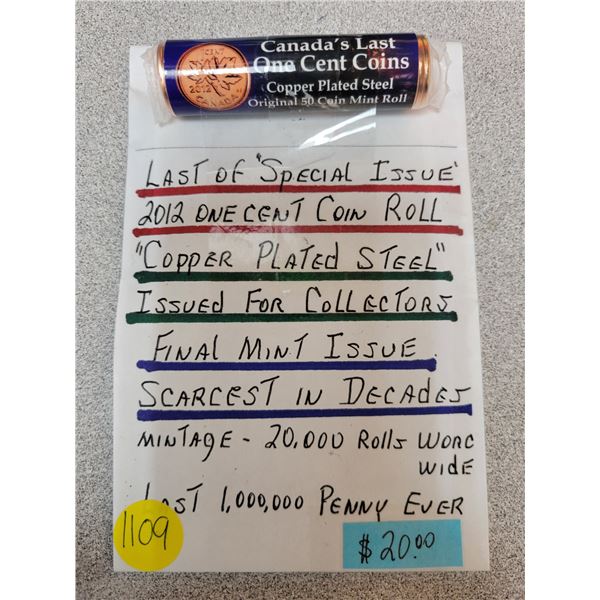 CENT
2012
CANADA
Canada's Last
One Cent Coins
Copper Plated Steel
Original 50 Coin Mint Roll
LAST OF "SPECIAL ISSUE'
2012 ONE CENT COIN ROLL
"COPPER PLATED STEEL"
ISSUED FOR COLLECTORS
FINAL MINT ISSUE.
SCARCEST IN DECADES
MINTAGE - 20,000 ROLLS
WIDE
LAST 1,000,000 PENNY EVER
1109
$20.00